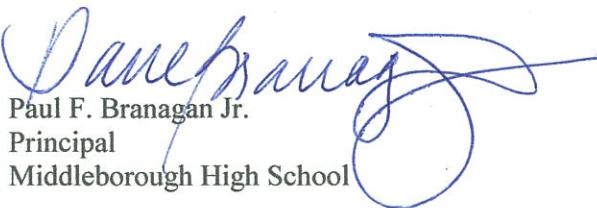 Paul Branag
Paul F. Branagan Jr.
Principal
Middleborough High School